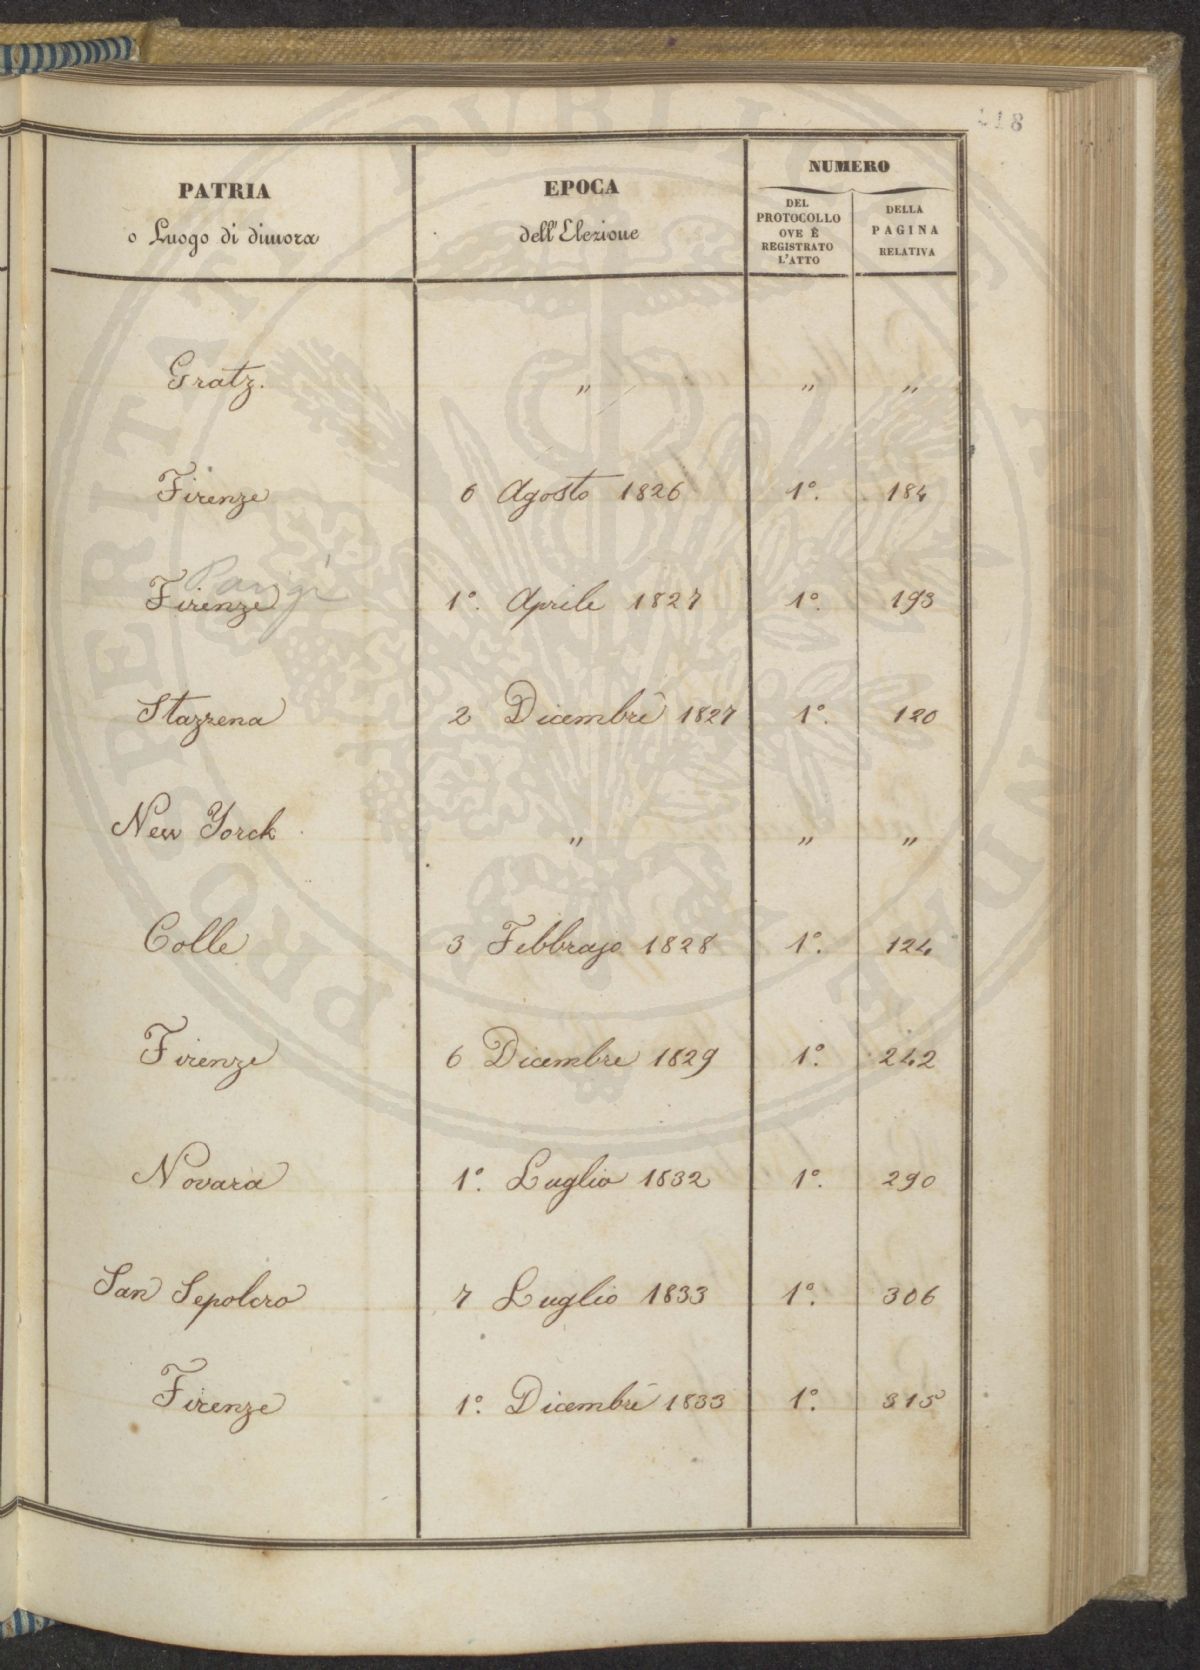 418
PATRIA
o Luogo di dimora
EPOCA
dell'Elezione
NUMERO
DEL
PROTOCOLLO
OVE È
REGISTRATO
L'ATTO
DELLA
PAGINA
RELATIVA
Gratz. " " "
Firenze 6 Agosto 1826 1º. 184
Parigi
Firenze 1º. Aprile 1827 1º. 193
Stazzena 2 Dicembre 1827 1º. 120
New Yorck " " "
Colle 3 Febbrajo 1828 1º. 124
Firenze 6 Dicembre 1829 1º. 242
Novara 1º. Luglio 1832 1º. 290
San Sepolcro 7 Luglio 1833 1º. 306
Firenze 1º. Dicembre 1833 1º. 315
PROSPERITATI PUBLICAE AUGENDAE